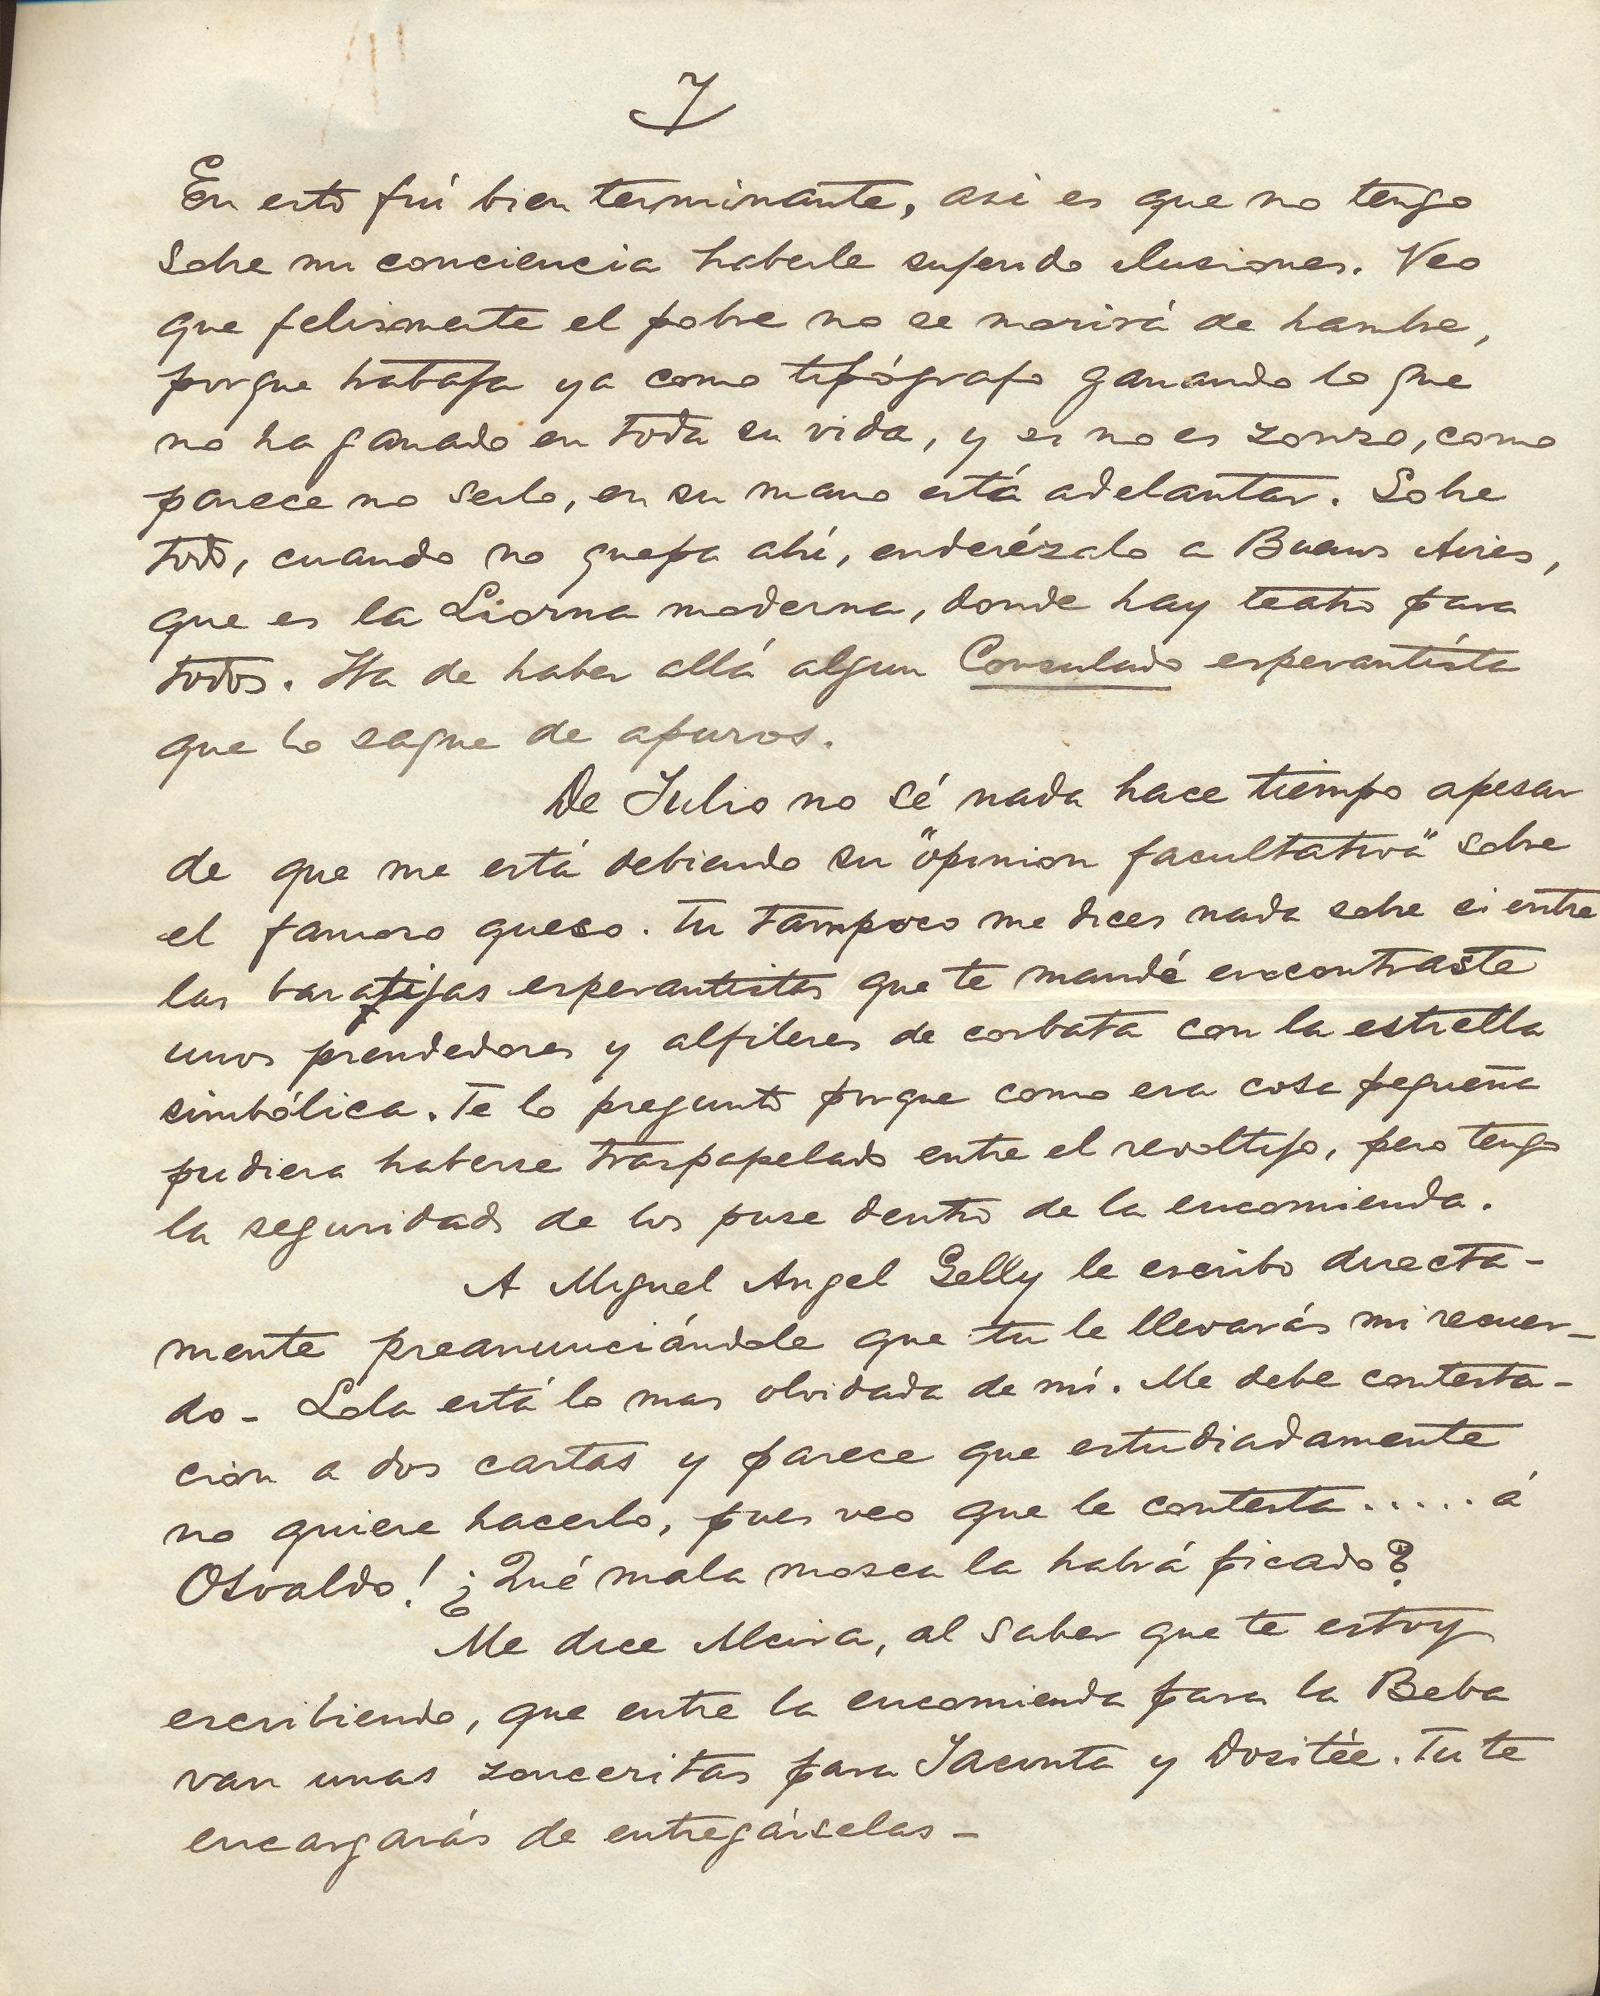 7
En esto fuí bien terminante, asi es que no tengo
sobre mi conciencia haberle sugerido ilusiones. Veo
que felismente el pobre no se morirá de hambre,
porque trabaja ya como tipógrafo ganando lo que
no ha ganado en toda su vida, y si no es zonzo, como
parece no serlo, en su mano está adelantar. Sobre
todo, cuando no quepa ahí, enderézalo a Buenos Aires,
que es la Liorna moderna, donde hay teatro para
todos. Ha de haber allá algun Consulado esperantista
que lo saque de apuros.
De Julio no sé nada hace tiempo apesar
de que me está debiendo su "opinion facultativa" sobre
el famoso queso. Tu tampoco me dices nada sobre si entre
las baratijas esperantistas que te mandé encontraste
unos prendedores y alfileres de corbata con la estrella
simbólica. Te lo pregunto porque como era cosa pequeña
pudiera haberse traspapelado entre el revoltijo, pero tengo
la seguridad de los puse dentro de la encomienda.
A Miguel Angel Gelly le escribo directa-
mente preanunciándole que tu le llevarás mi recuer-
do - Lola está lo mas olvidada de mí. Me debe contesta-
cion a dos cartas y parece que estudiadamente
no quiere hacerlo, pues veo que le contesta ..... á
Osvaldo! ¿Qué mala mosca la habrá picado?
Me dice Meira, al saber que te estoy
escribiendo, que entre la encomienda para la Beba
van unas zonceritas para Jacinta y Dositée. Tu te
encargarás de entregárselas -